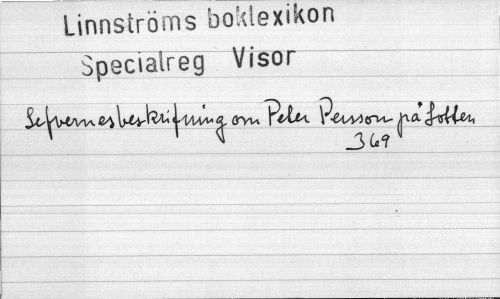 Linnströms boklexikon
Specialreg Visor
Lefvernesbeskrifning om Peter Persson på Lotten
369